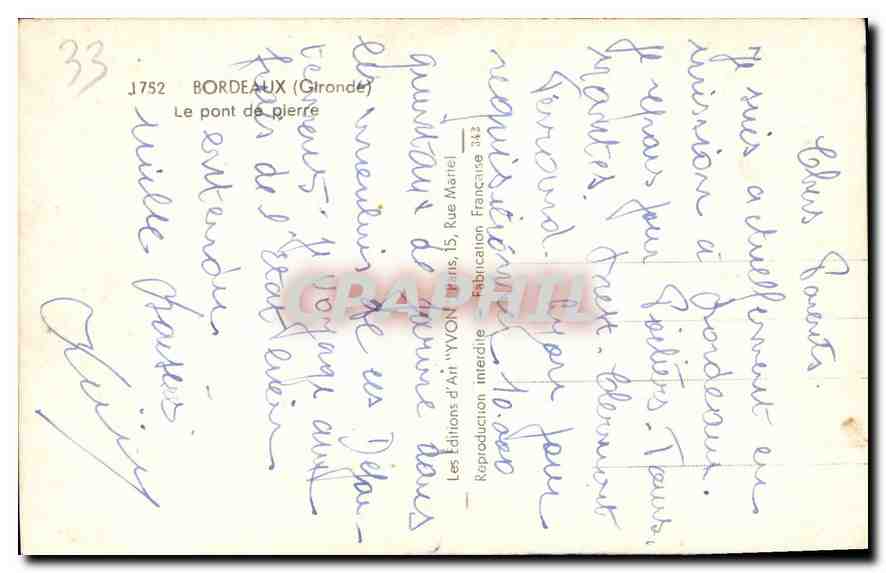 33
1752 BORDEAUX (Gironde)
Le pont de pierre
Les Editions d'Art "YVON" Paris, 15, Rue Martel
Reproduction interdite Fabrication Française 343
CPAPHIL
Chers Parents.
Je suis actuellement en
mission à Bordeaux.
Je repars pour Poitiers. Tours,
Nantes. Brest. Clermont
Ferrand. Lyon pour
réquisitionner 10.000
quintaux de farine dans
les moulins de ces Dépar-
tements. Je voyage aux
frais de l'Etat bien
entendu.
mille baisers